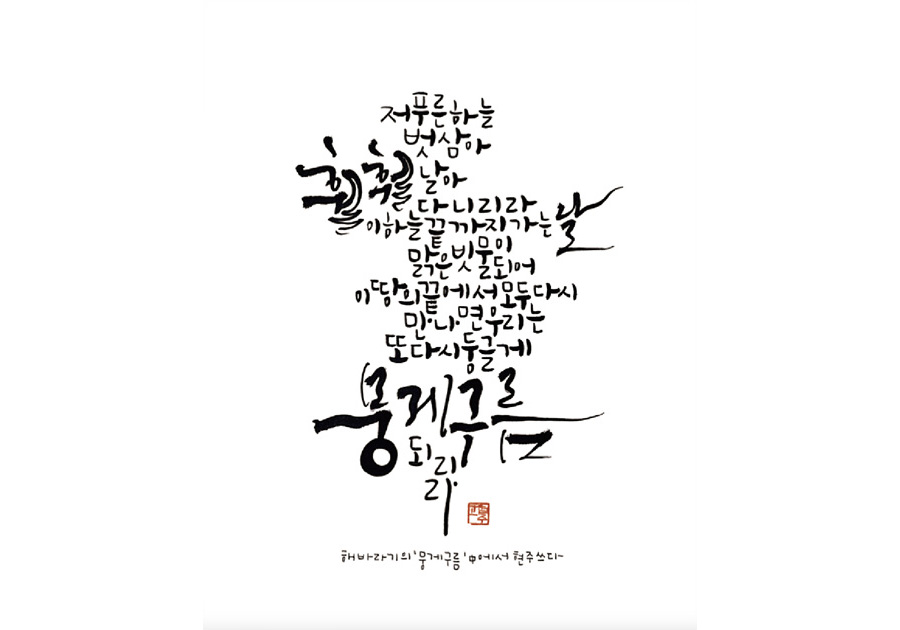 저푸른하늘
벗삼아
훨훨 날아
다니리라
이하늘끝까지가는 날
맑은빗물이
되어
이땅의끝에서모두다시
만나면우리는
또다시둥글게
뭉게구름
되리라
해바라기의 '뭉게구름' 中에서 현주쓰다